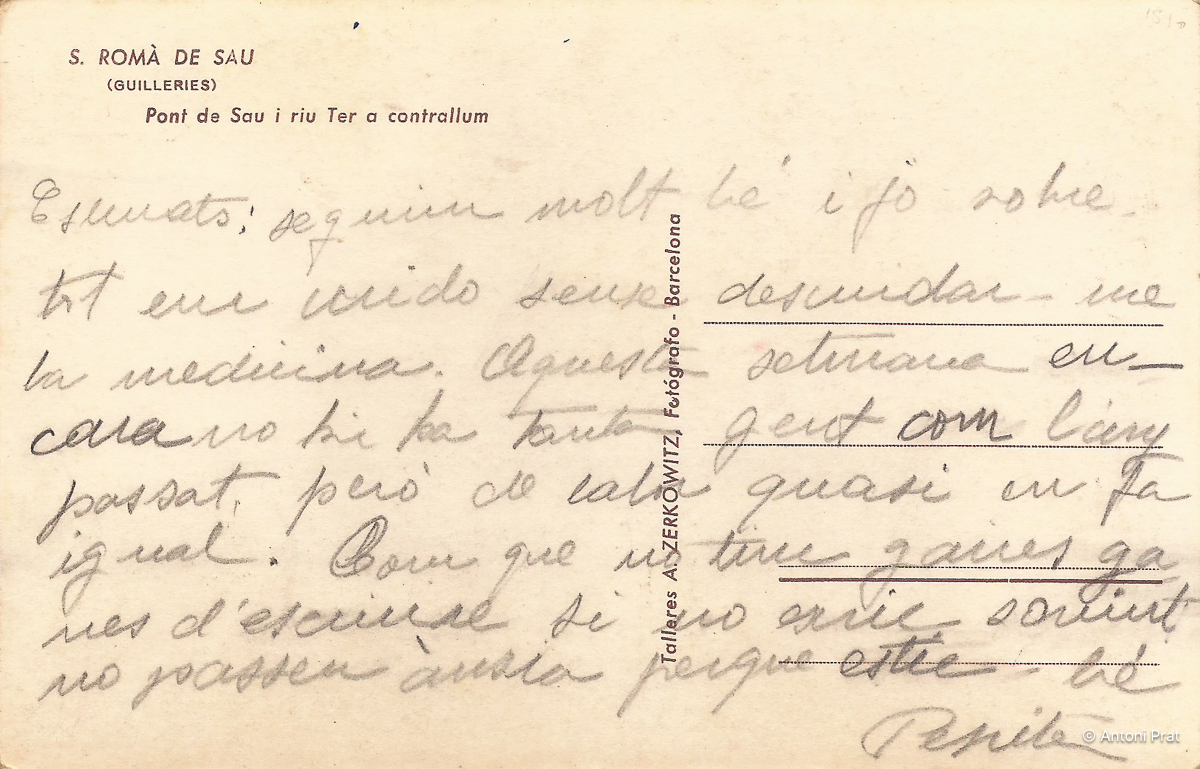 S. ROMÀ DE SAU
(GUILLERIES)
Pont de Sau i riu Ter a contrallum
Estimats; seguim molt bé i jo sobre
tot em cuido sense descuidar-me
la medicina. Aquesta setmana en-
cara no hi ha tanta gent com l'any
passat, però de calor quasi en fa
igual. Com que no tinc ganes ga
nes d'escriure si no escric sovint
no passeu ànsia perque estic bé
Pepita
Talleres A. ZERKOWITZ, Fotógrafo - Barcelona
© Antoni Prat